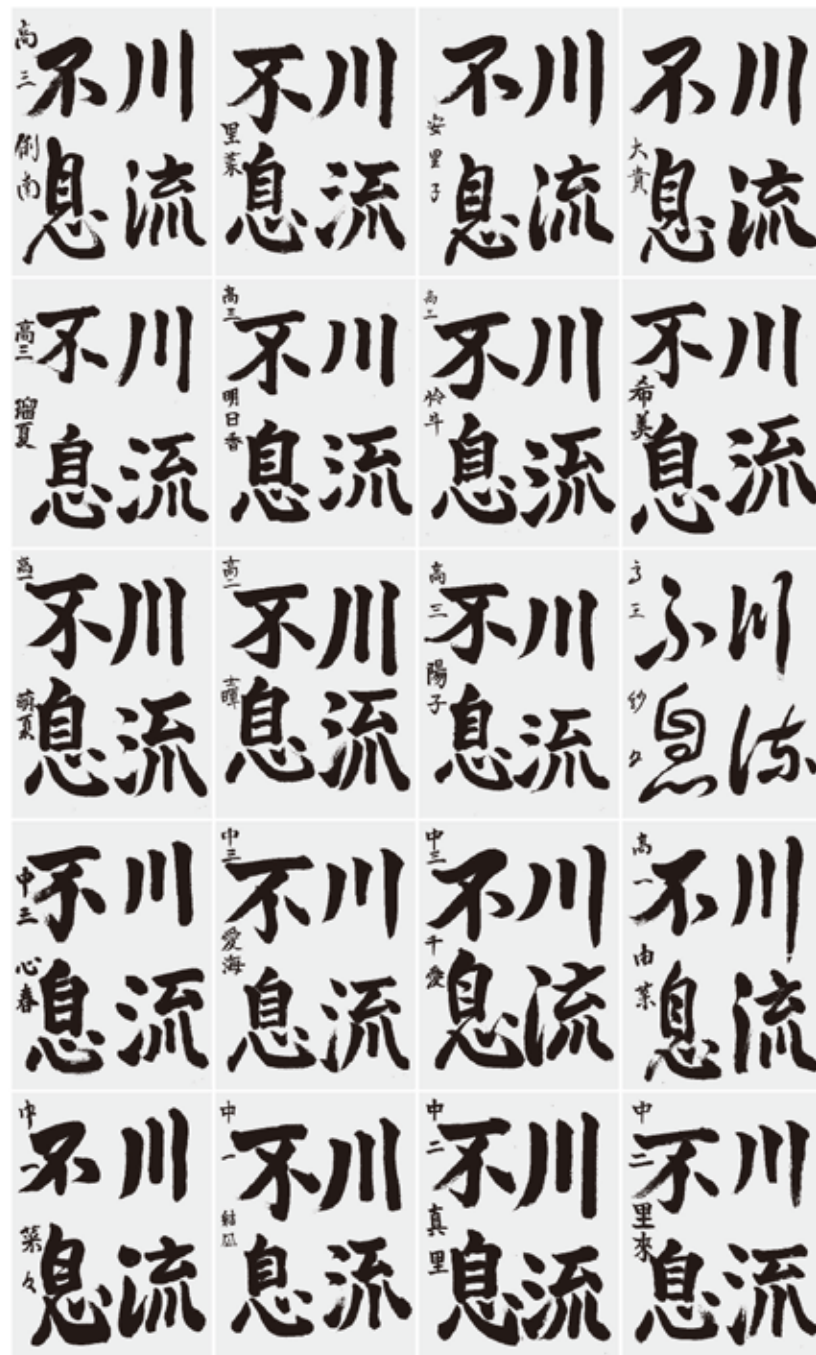 川流
不息
高三 俐南
川流
不息
里菜
川流
不息
安里子
川流
不息
大貴
川流
不息
高三 瑠夏
川流
不息
高三 明日香
川流
不息
高二 怜斗
川流
不息
希美
川流
不息
高一 萌夏
川流
不息
高二
川流
不息
高三 陽子
川流
不息
高三
川流
不息
中三 心春
川流
不息
中三 愛海
川流
不息
中三 千愛
川流
不息
高一 由菜
川流
不息
中一 菜々
川流
不息
中一
川流
不息
中二 真里
川流
不息
中二 里來